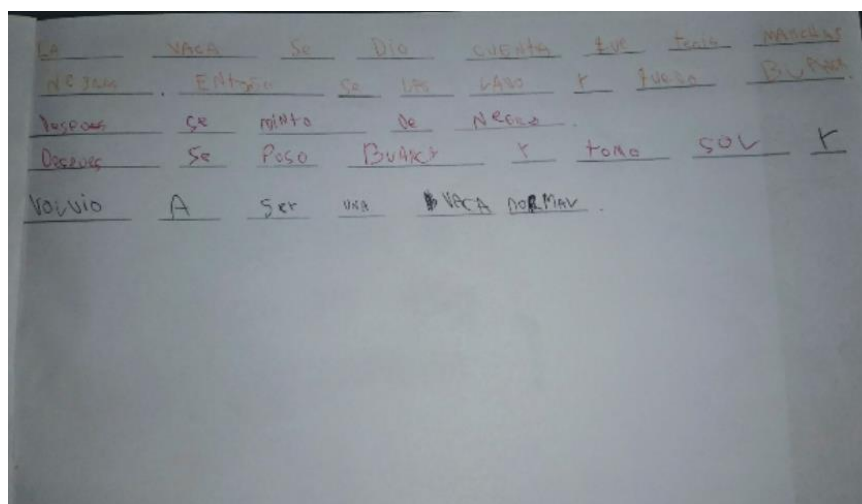 LA VACA Se Dio CUENTA que tenia MANCHAS
NeJRAS. ENtONSe Se LAS LABO Y QueDO BLANCA.
Despues se minto De NeGRo.
Despues Se Poso BLANCA Y tOMO SOL Y
VOLVIO A Ser UNA VACA NORMAL.